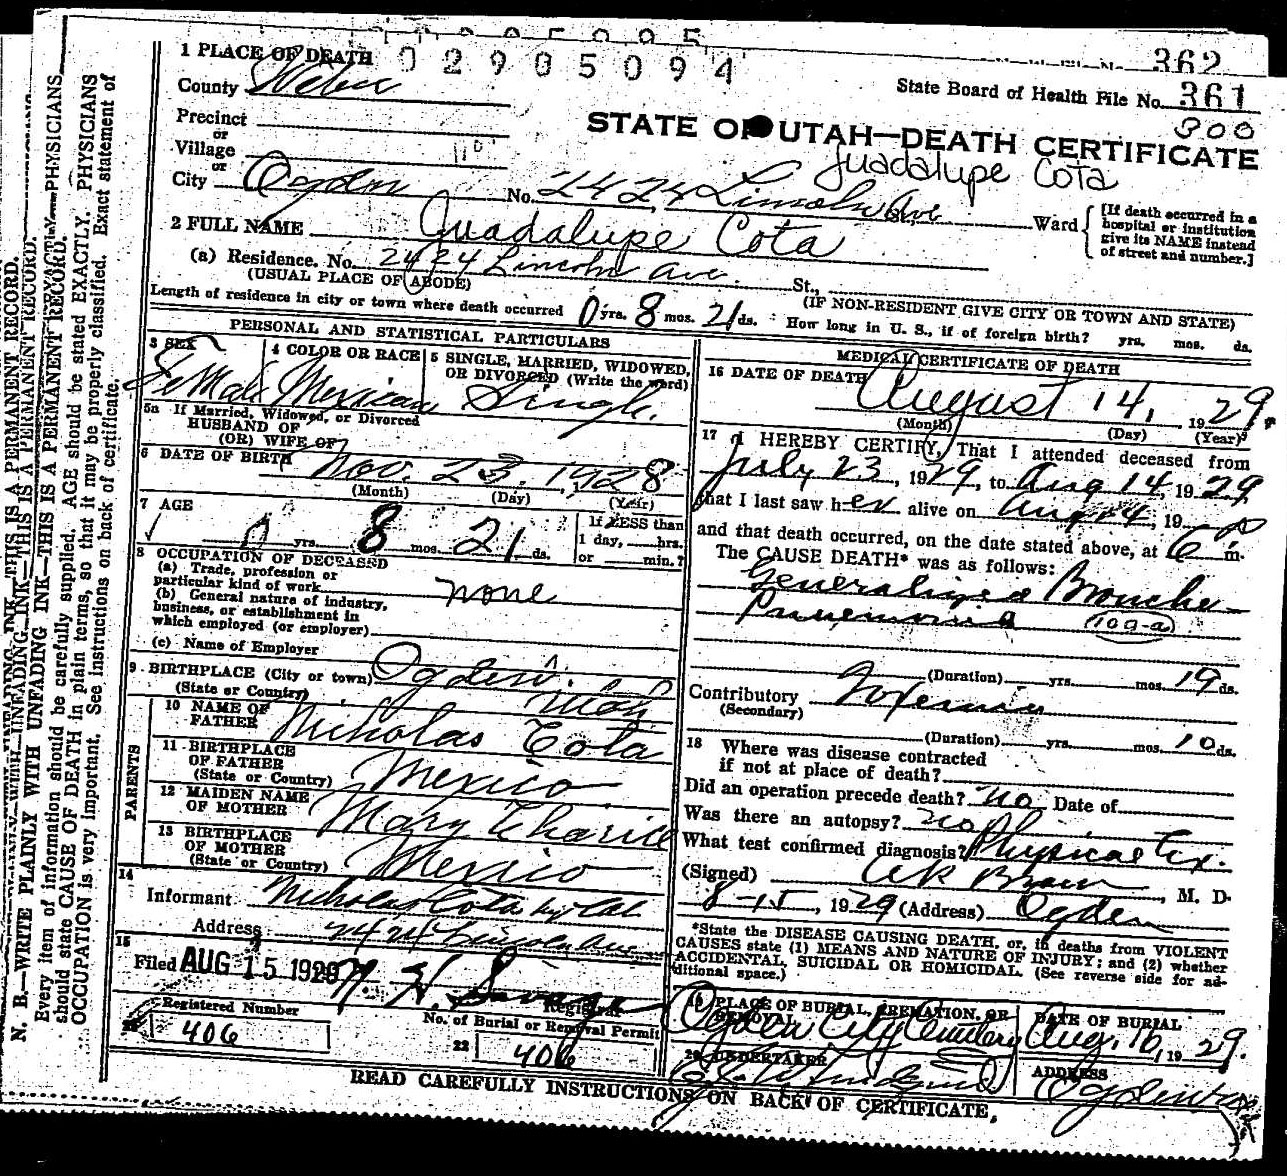 1 PLACE OF DEATH
02905094
362
County Weber
State Board of Health File No. 361
300
Precinct
or
Village
or
STATE OF UTAH—DEATH CERTIFICATE
Guadalupe Cota
City Ogden No. 2424 Lincoln Ave Ward
[If death occurred in a hospital or institution give its NAME instead of street and number.]
2 FULL NAME Guadalupe Cota
(a) Residence. No. 2424 Lincoln Ave. St.,
(USUAL PLACE OF ABODE) (IF NON-RESIDENT GIVE CITY OR TOWN AND STATE)
Length of residence in city or town where death occurred 0 yrs. 8 mos. 21 ds. How long in U. S., if of foreign birth? yrs. mos. ds.
PERSONAL AND STATISTICAL PARTICULARS
3 SEX 4 COLOR OR RACE 5 SINGLE, MARRIED, WIDOWED, OR DIVORCED (Write the word)
FeMale Mexican Single.
5a If Married, Widowed, or Divorced
HUSBAND OF
(OR) WIFE OF
6 DATE OF BIRTH Nov. 23. 1928
(Month) (Day) (Year)
7 AGE
0 yrs. 8 mos. 21 ds.
If LESS than
1 day, hrs.
or min.?
8 OCCUPATION OF DECEASED
(a) Trade, profession or
particular kind of work
(b) General nature of industry,
business, or establishment in
which employed (or employer)
none
(c) Name of Employer
9 BIRTHPLACE (City or town) Ogden.
(State or Country) Utah
PARENTS
10 NAME OF
FATHER Nicholas Cota
11 BIRTHPLACE
OF FATHER
(State or Country) Mexico
12 MAIDEN NAME
OF MOTHER Mary
13 BIRTHPLACE
OF MOTHER
(State or Country) Mexico
14
Informant Nicholas Cota
Address 2424 Lincoln Ave
15
Filed AUG 15 1929
Registrar
Registered Number
406
No. of Burial or Removal Permit
22 406
MEDICAL CERTIFICATE OF DEATH
16 DATE OF DEATH August 14, 1929.
(Month) (Day) (Year)
17 I HEREBY CERTIFY, That I attended deceased from
July 23, 1929, to Aug 14, 1929
that I last saw her alive on Aug 14, 19
and that death occurred, on the date stated above, at 6 P m.
The CAUSE DEATH* was as follows:
Generalized Broncho
Pneumonia (100-a)
(Duration) yrs. mos. 19 ds.
Contributory
(Secondary)
(Duration) yrs. mos. 10 ds.
18 Where was disease contracted
if not at place of death?
Did an operation precede death? No Date of
Was there an autopsy? no
What test confirmed diagnosis? Physical Ex.
(Signed) Brown, M. D.
8-15, 1929 (Address) Ogden
*State the DISEASE CAUSING DEATH, or, in deaths from VIOLENT
CAUSES state (1) MEANS AND NATURE OF INJURY; and (2) whether
ACCIDENTAL, SUICIDAL OR HOMICIDAL. (See reverse side for ad-
ditional space.)
19 PLACE OF BURIAL, CREMATION, OR REMOVAL DATE OF BURIAL
Ogden City Cemetery Aug. 16, 1929.
20 UNDERTAKER ADDRESS
Ogden
READ CAREFULLY INSTRUCTIONS ON BACK OF CERTIFICATE.
N. B.—WRITE PLAINLY WITH UNFADING INK—THIS IS A PERMANENT RECORD.
Every item of information should be carefully supplied. AGE should be stated EXACTLY. PHYSICIANS
should state CAUSE OF DEATH in plain terms, so that it may be properly classified. Exact statement of
OCCUPATION is very important. See instructions on back of certificate.